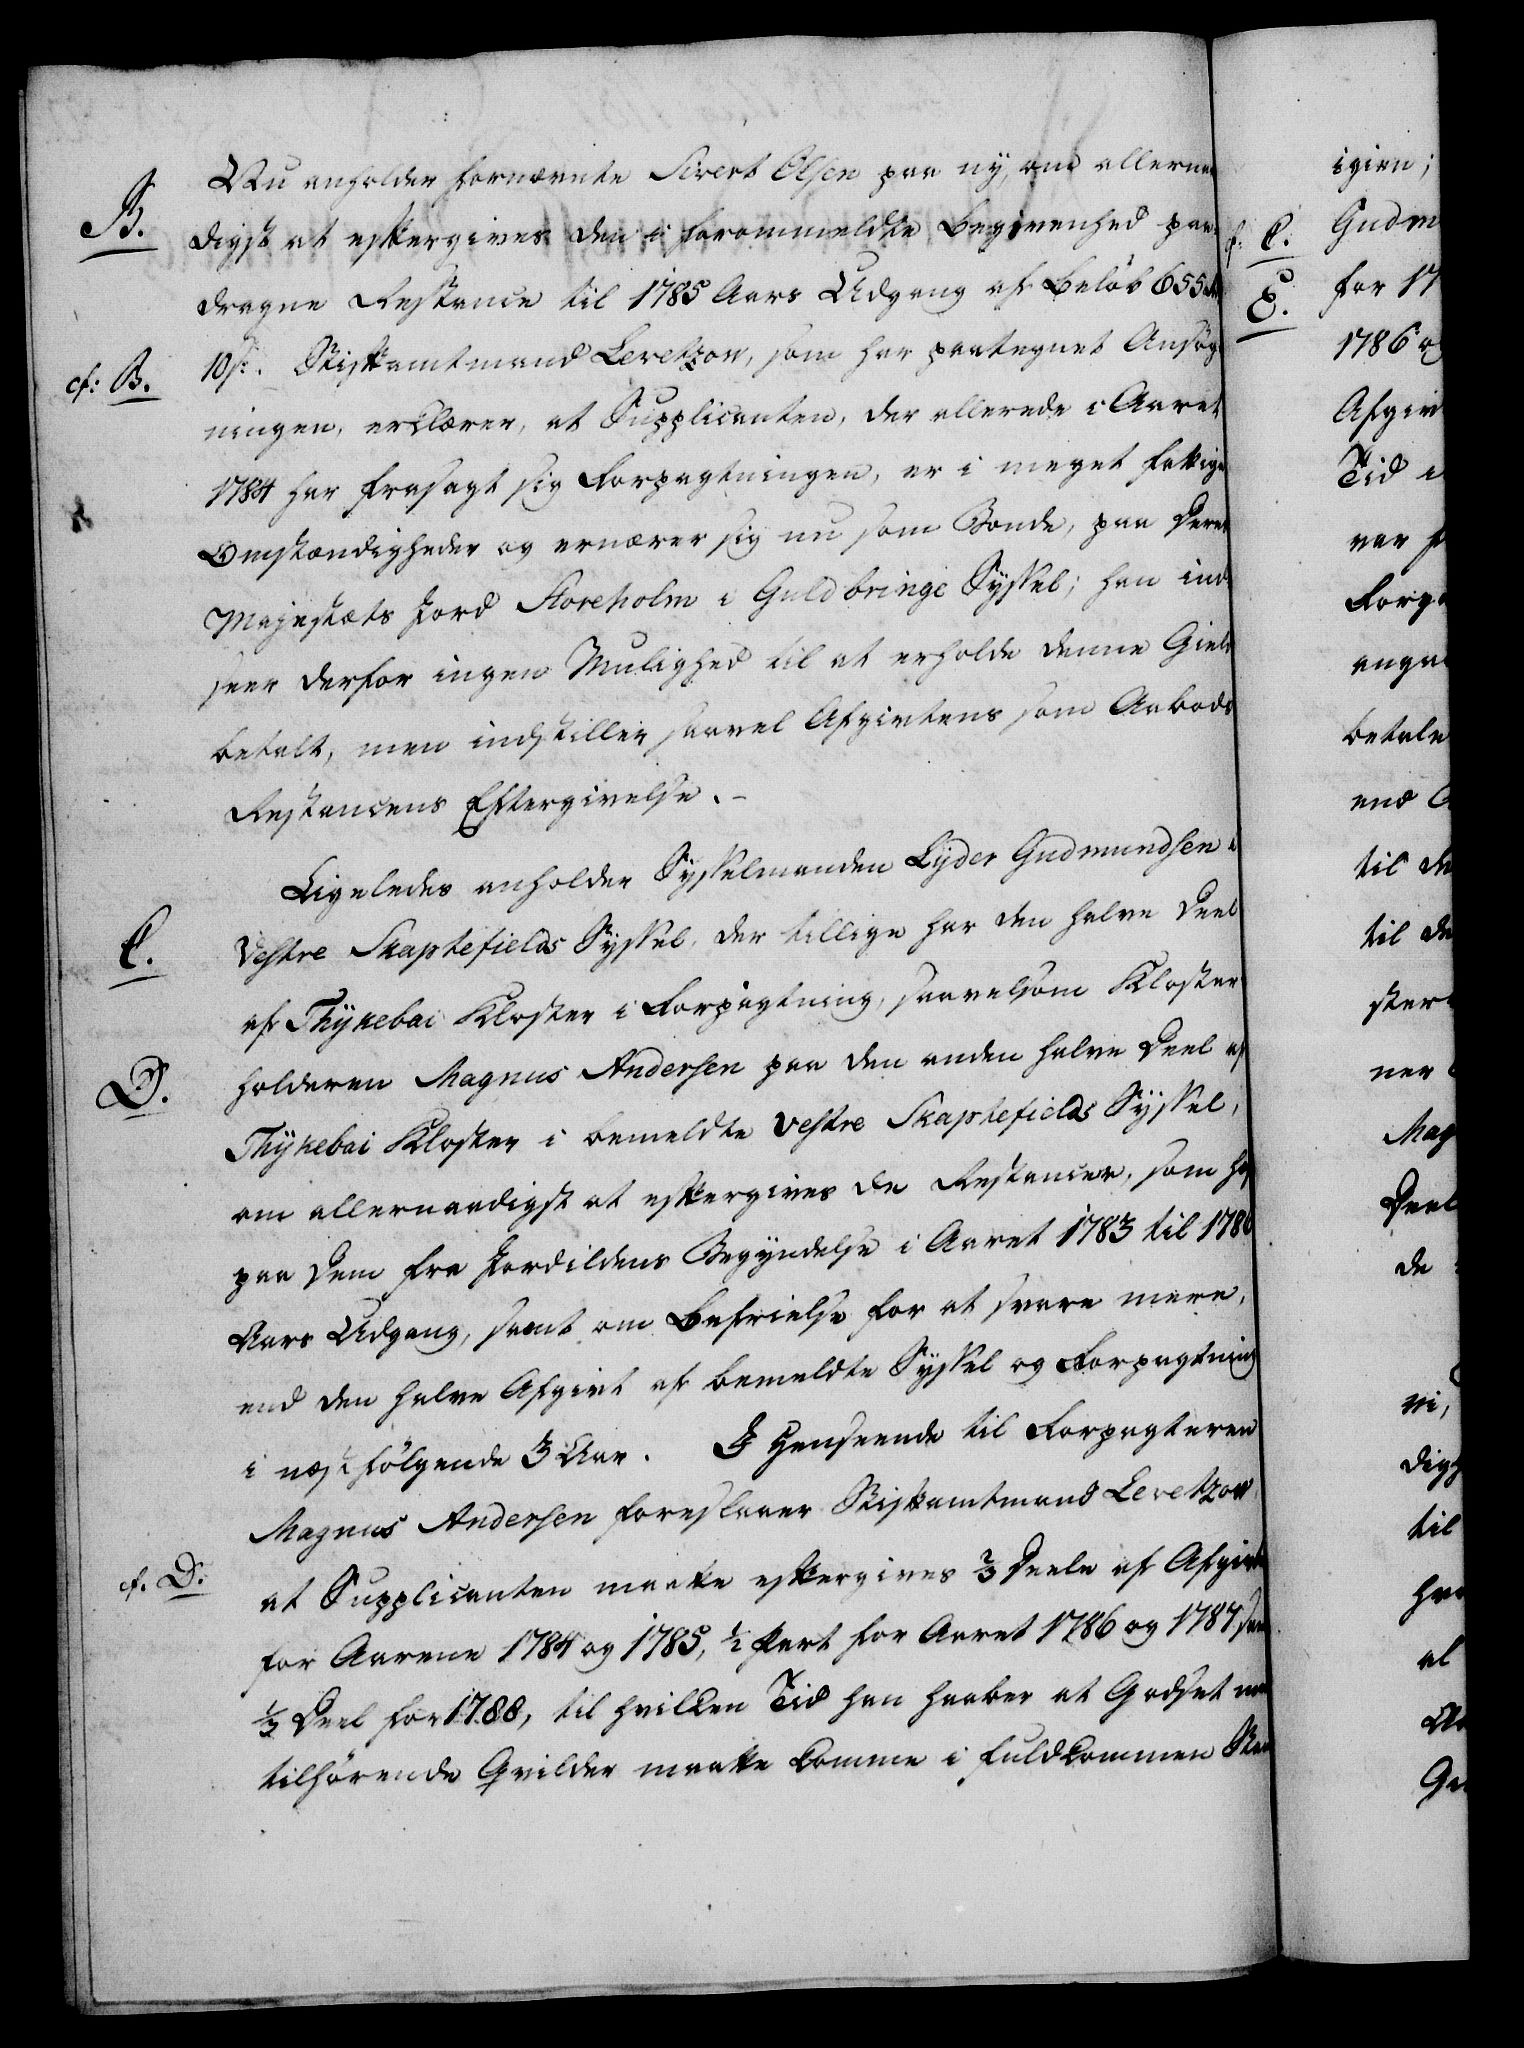 B.
Nu anholder fornævnte Sivert Olsen paa ny, om allernaa
digst at eftergives den i forommeldte Begivenhed paa
dragne Restance til 1785 Aars Udgang af Beløb 655
cf: B.
10 s. Stiftamtmand Levetzow, som har paategnet Ansøg
ningen, erklærer, at Supplicanten, der allerede i Aaret
1784 har frasagt sig Forpagtningen, er i meget fattige
Omstændigheder og ernærer sig nu som Bonde, paa Deres
Majestæts Jord Storeholm i Guldbringe Syssel; han ind
seer derfor ingen Mulighed til at erholde denne Gield
betalt, men indstiller saavel Afgivtens som Aabods
Restancens Eftergivelse. -
Ligeledes anholder Sysselmanden Lyder Gudmundsen i
C.
Vestre Skaptefields Syssel, der tillige har den halve Deel
af Thykebai Kloster i Forpagtning, saavelsom Kloster
D.
holderen Magnus Andersen paa den anden halve Deel af
Thykebai Kloster i bemeldte Vestre Skaptefields Syssel,
om allernaadigst at eftergives de Restancer, som
paa dem fra Jordildens Begyndelse i Aaret 1783 til 1786
Aars Udgang, samt om Befrielse for at svare mere,
end den halve Afgivt af bemeldte Syssel og Forpagtning
i næstfølgende 3 Aar. I Henseende til Forpagteren
Magnus Andersen foreslaaer Stiftamtmand Levetzow
cf. D.
at Supplicanten maatte eftergives 2/3 Deele af Afgivten
for Aarene 1784 og 1785, 1/2 Part for Aaret 1786 og 1787 samt
1/3 Deel for 1788, til hvilken Tid han haaber at Godset med
tilhørende Qvilder maatte komme i fuldkommen
igien;
cf. C.
Gudm
E.
for 17
1786 og
Afgiv
Tid
var
Forpa
anga
betale
end
til de
til de
ster
ner
Mag
Deel
de
vi,
digh
til
hva
al